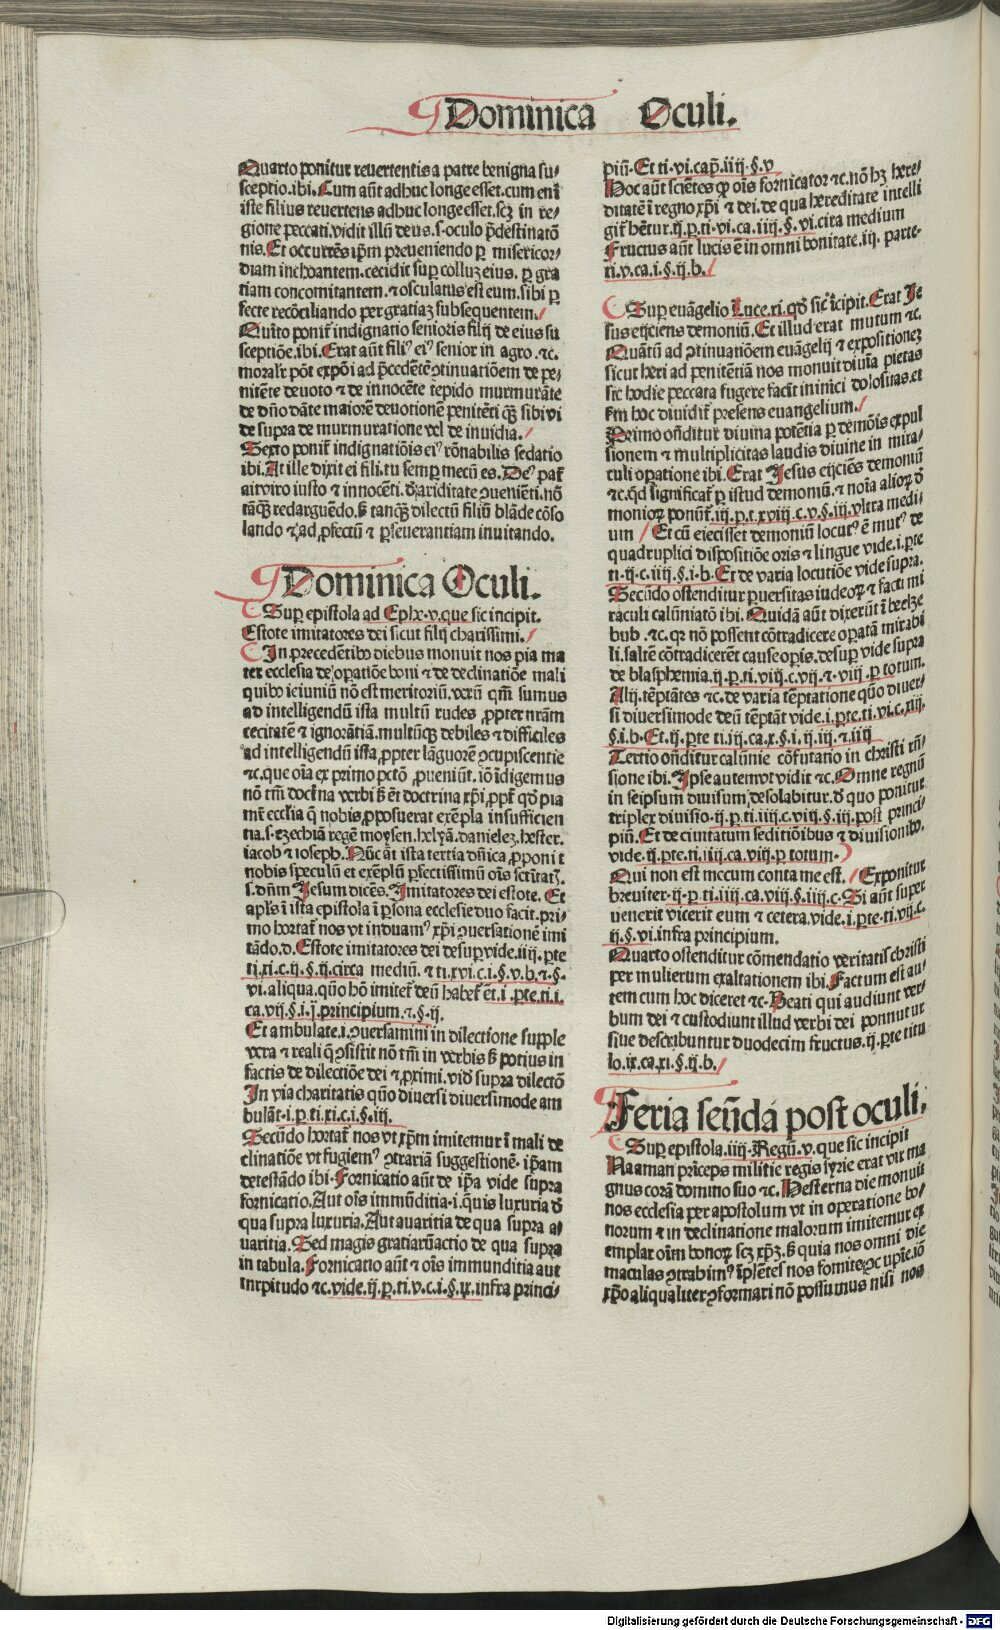 Dominica Oculi.
Quarto ponitur reuertentis a patre benigna su⸗
sceptio.ibi. Cum aūt adhuc longe esset. cum eni
iste filius reuertens adhuc longe esset. scʒ in re⸗
gione peccati. vidit illū deus. s. oculo p̄destinatō
nis. Et occurrēs ip̄m preueniendo ꝑ misericor⸗
diam inchoantem. cecidit suꝑ collū eius. ꝑ gra
tiam concomitantem. ⁊ osculatus est eum. sibi ꝑ
fecte recōciliando per gratiaʒ subsequentem.
Quīto ponit̄ indignatio senioris filij de eius su
sceptiōe. ibi. Erat aūt fili⁹ ei⁹ senior in agro. ⁊c.
moralr̄ pōt expōi ad p̄cedētē ꝯtinuatiōem de pe⸗
nitēte deuoto ⁊ de innocēte tepido murmurāte
de dn̄o dāte maiorē deuotionē penitēti qꝫ sibi vi
de supra de murmuratione vel de inuidia.
Sexto ponit̄ indignatiōis ei⁹ rōnabilis sedatio
ibi. At ille dixit ei fili. tu semꝑ mecū es. De⁹ pat̄
ait viro iusto ⁊ innocēti. ꝺ̄ ariditate ꝯueniēti. nō
tāqꝫ redarguēdo. sꝫ tanqꝫ dilectū filiū blāde cōso
lando ⁊ ad ꝓfectū ⁊ ꝑseuerantiam inuitando.
Dominica Oculi.
Suꝑ epistola ad Ephe. v. que sic incipit.
Estote imitatores dei sicut filij charissimi.
In precedentibꝰ diebus monuit nos pia ma
ter ecclesia de oꝑatiōe boni ⁊ de declinatiōe mali
quibꝰ ieiuniū nō est meritoriū. verū qm̄ sumus
ad intelligendū ista multū rudes ꝓpter nr̄am
cecitatē ⁊ ignorātiā. multūqꝫ debiles ⁊ difficiles
ad intelligendū ista ꝓpter lāguorē ꝯcupiscentie
⁊c. que oīa ex primo pctō ꝓueniūt. iō īdigemus
nō tm̄ doctrīa verbi sꝫ et̄ doctrina xp̄i ꝓpt̄ qd̄ pia
mr̄ ecclīa q̄ nobis ꝓposuerat exēpla insufficien
tia. s. ezechiā regē moysen. helyā. danieleʒ. hester.
iacob ⁊ ioseph. Nūc āt ista tertia dn̄ica ꝓponit
nobis speculū ⁊ exēplū ꝑfectissimū oīs scītatʒ.
s. dn̄m Jesum dicēs. Imitatores dei estote. Et
apl̄s ī ista epistola ī ꝑsona ecclesie duo facit. pri⸗
mo hortat̄ nos vt induam⁹ xp̄i ꝯuersationē imi
tādo. ꝺ. Estote imitatores dei desuꝑ vide. iiij. ꝑte
ti. xi. c. ij. §. ij. circa mediū. ⁊ ti. xvi. c. i. §. v. b. ⁊. §.
vi. aliqua. qūo hō imitet̄ deū habet̄ et̄. i. ꝑte. ti. i.
ca. vij. §. i. j. principium. ⁊. §. ij.
Et ambulate. i. ꝯuersamini in dilectione supple
vera ⁊ reali q̄ ꝯsistit nō tm̄ in verbis sꝫ potius in
factis de dilectiōe dei ⁊ ꝓximi. vid̄ supra dilectō
In via charitatis qūo diuersi diuersimode am
bulāt. i. ꝑ. ti. xi. c. i. §. iij.
Secūdo hortat̄ nos vt xp̄m imitemur ī mali de
clinatiōe vt fugiem⁹ ꝯtrariā suggestionē. ip̄am
detestādo ibi. Fornicatio aūt de ip̄a vide supra
fornicatio. Aut oīs immūditia. i. q̄uis luxuria ꝺ̄
qua supra luxuria. Aut auaritia de qua supra a⸗
uaritia. Sed magis gratiarū actio de qua supra
in tabula. Fornicatio aūt ⁊ oīs immunditia aut
turpitudo ⁊c. vide. ij. ꝑ. ti. v. c. i. §. ij. infra princi⸗
piū. Et ti. vi. cap̄. iiij. §. v
Hoc aūt scitētes ꝙ oīs fornicator ⁊c. nō hʒ here⸗
ditatē ī regno xp̄i ⁊ dei. de qua hereditate intelli
git̄ bētur. ij. ꝑ. ti. vi. ca. iiij. §. vi. cira medium
Fructus aūt lucis ē in omni bonitate. iij. parte.
ti. v. ca. i. §. ij. b.
Suꝑ euāgelio Luce. xi. qd̄ sic īcipit. Erat Je
sus eijciens demoniū. Et illud erat mutum ⁊c.
Quātū ad ꝯtinuatiōem euāgelij ⁊ expositioneʒ
sicut heri ad penitētiā nos monuit diuīa pietas
sic hodie peccata fugere facit inimici dolositas. et
ẜm hoc diuidit̄ presens euangelium.
Primo on̄ditur diuina potētia ꝑ demōis expul
sionem ⁊ multiplicitas laudis diuine in mira⸗
culi oꝑatione ibi. Erat Jesus eijciēs demoniū
⁊c. qd̄ significat̄ ꝑ istud demoniū. ⁊ noīa alioꝝ ꝺ̄
monioꝝ ponūt̄. iij. ꝑ. t. xviij. c. v. §. iij. vltra medi⸗
um Et cū eiecisset demoniū locut⁹ ē mut⁹ de
quadruplici dispositiōe oris ⁊ lingue vide. i. ꝑte
ti. ij. c. iiij. §. i. b. Et de varia locutiōe vide supra.
Secūdo ostenditur ꝑuersitas iudeoꝝ ⁊ facti mi
raculi calūniatō ibi. Quidā aūt dixerūt ī beelze
bub. ⁊c. qꝛ nō possent cōtradicere oꝑatā mirabi
li. saltē cōtradicerēt cause oꝑis. desuꝑ vide supra
de blasphemia. ij. ꝑ. ti. viij. c. vij. ⁊. viij. ꝑ totum.
Alij. tēptātes ⁊c. de varia tēptatione qūo diuer⸗
si diuersimode deū tēptāt vide. i. ꝑte. ti. vi. c. xij.
§. i. b. Et. ij. ꝑte ti. iij. ca. x. §. i. ij. iij. ⁊ iiij
Tertio on̄ditur calūnie cōfutatio in christi rn̄⸗
sione ibi. Ipse autem vt vidit ⁊c. Omne regnū
in seipsum diuisum desolabitur. ꝺ̄ quo ponitur
triplex diuisio. ij. ꝑ. ti. iiij. c. viij. §. iij. post princi⸗
piū. Et de ciuitatum seditiōibus ⁊ diuisionibꝰ.
vide. ij. ꝑte. ti. iiij. ca. viij. ꝑ totum.
Qui non est mecum conta me est. Exponitur
breuiter. ij. ꝑ. ti. iiij. ca. viij. §. iiij. c. Si aūt super
uenerit vicerit eum ⁊ cetera. vide. i. ꝑte. ti. vij. c.
ij. §. vi. infra principium.
Quarto ostenditur cōmendatio veritatis christi
per mulierum exaltationem ibi. Factum est au⸗
tem cum hoc diceret ⁊c. Beati qui audiunt ver⸗
bum dei ⁊ custodiunt illud verbi dei ponnutur
siue describuntur duodecim fructus. ij. ꝑte titu
lo. ix. ca. xi. §. ij. b.
Feria scn̄da post oculi.
Suꝑ epistola. iiij. Regū. v. que sic incipit
Naaman prīceps militie regis syrie erat vir ma
gnus corā domino suo ⁊c. Hesterna die monuit
nos ecclesia per apostolum vt in operatione bo⸗
norum ⁊ in declinatione malorum imitemur ex
emplar oīm bonoꝝ scʒ xp̄ʒ. sꝫ quia nos omni die
maculas ꝯtrahim⁹ īplētes nos fomite ꝯcupīe. iō
xp̄o aliqualiter ꝯformari nō possumus nisi nos
Digitalisierung gefördert durch die Deutsche Forschungsgemeinschaft - DFG